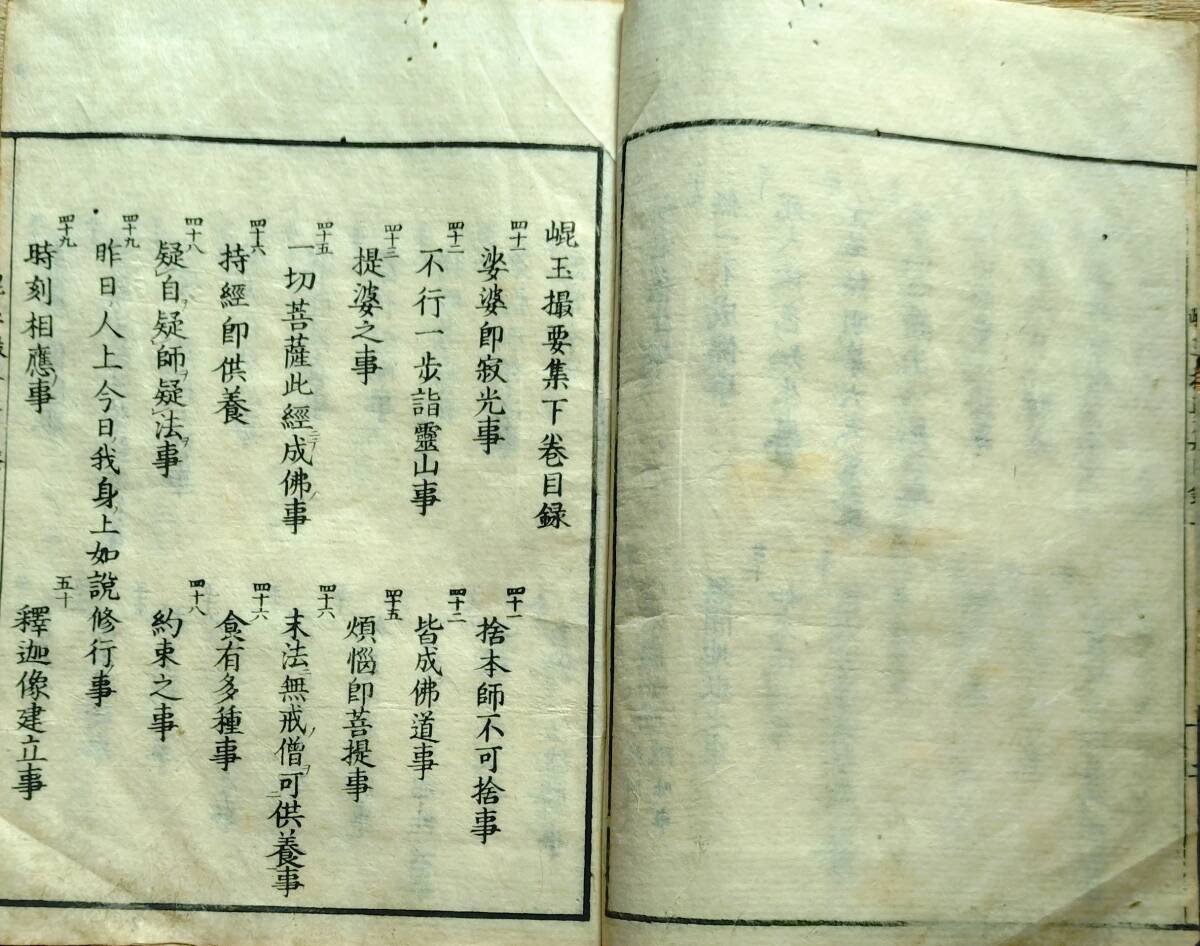 崐玉撮要集下卷目録
四十一 娑婆即寂光事 四十一 捨本師不可捨事
四十二 不行一步詣靈山事 四十二 皆成佛道事
四十三 提婆之事 四十五 煩惱即菩提事
四十五 一切菩薩此經ニヲ成佛ノ事 四十六 末法ニ無戒ノ僧ヲ可供養事
四十六 持經即供養 四十六 食有多種事
四十八 疑自ヲ疑師ヲ疑法ヲ事 四十八 約束之事
四十九 昨日ハ人ノ上今日ハ我身ノ上如說修行ノ事
四十九 時刻相應ノ事 五十 釋迦像建立事